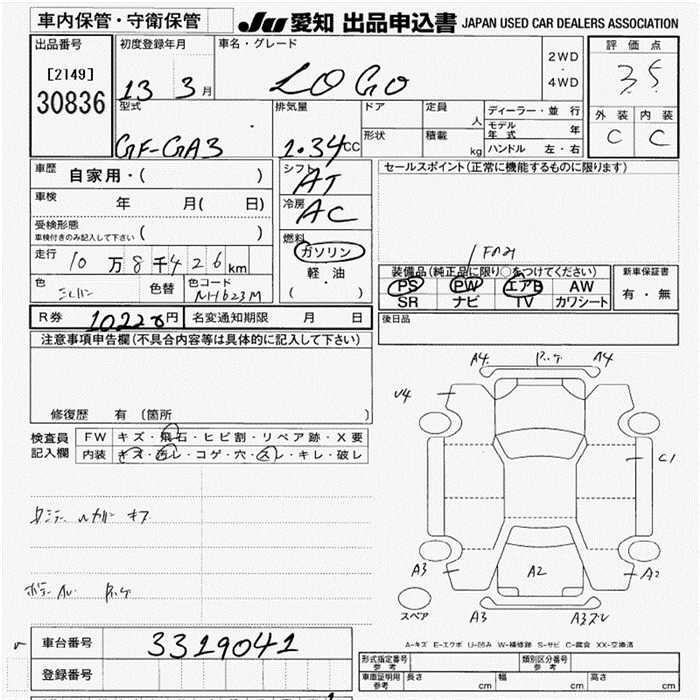 車内保管・守衛保管
JU 愛知 出品申込書 JAPAN USED CAR DEALERS ASSOCIATION
出品番号
[2149]
30836
初度登録年月
13 3月
車名・グレード
LOGO
2WD
・
4WD
評価点
3.5
外装 内装
C C
型式
GF-GA3
排気量
1.34CC
ドア
形状
定員
人
積載
kg
ディーラー・並行
モデル年式 年
ハンドル 左・右
車歴
自家用・( )
車検
年 月( 日)
受検形態
車検付きのみ記入して下さい ( )
走行 10万8千426km
色
色替
色コード
NH623M
シフト
AT
冷房
AC
燃料
ガソリン
軽油
( )
セールスポイント(正常に機能するものに限ります)
装備品(純正品に限り○をつけてください)
PS PW エアB AW
SR ナビ TV カワシート
新車保証書
有・無
R券 10220円
名変通知期限 月 日
後日品
注意事項申告欄(不具合内容等は具体的に記入して下さい)
修復歴 有 (箇所 )
検査員
記入欄
FW キズ・飛石・ヒビ割・リペア跡・X要
内装 キズ・汚レ・コゲ・穴・スレ・キレ・破レ
A4 A4
U4
C1
A3 A2 A2
A3 A3ズレ
スペア
A-キズ E-エクボ U-凹み W-補修跡 S-サビ C-腐食 XX-交換済
車台番号 3319041
登録番号
形式指定番号
参考
類別区分番号
参考
車庫証明用
参考
長さ cm 幅 cm 高さ cm